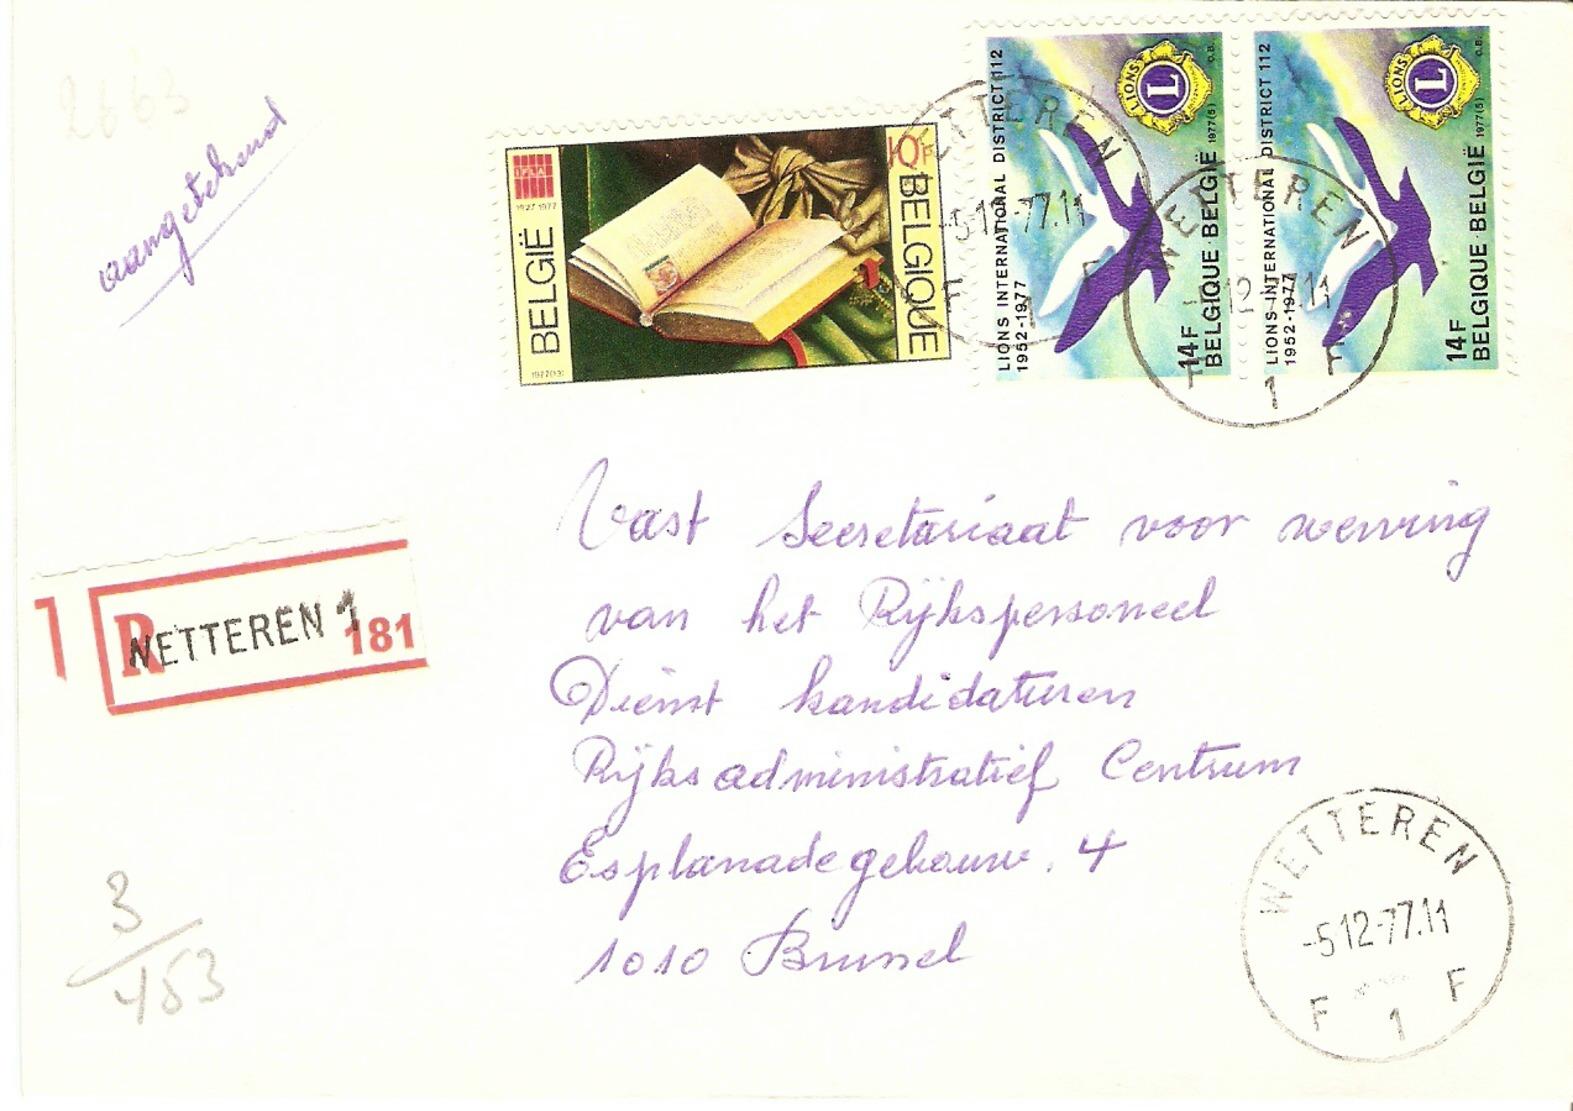 2663
aangetekend
IFLA
1927 1977
BELGIË
1977(13)
10F
BELGIQUE
LIONS INTERNATIONAL DISTRICT 112
1952-1977
LIONS
L
INTERNATIONAL
O.B.
1977(5)
14F
BELGIQUE·BELGIË
LIONS INTERNATIONAL DISTRICT 112
1952-1977
LIONS
L
INTERNATIONAL
O.B.
1977(5)
14F
BELGIQUE·BELGIË
WETTEREN
-512-77.11
F 1 F
WETTEREN
-512-77.11
F 1 F
Vast Secretariaat voor werving
van het Rijkspersoneel
Dienst kandidaturen
Rijksadministratief Centrum
Esplanadegebouw. 4
1010 Brussel
1
R
WETTEREN 1
181
3
453
WETTEREN
-512-77.11
F 1 F